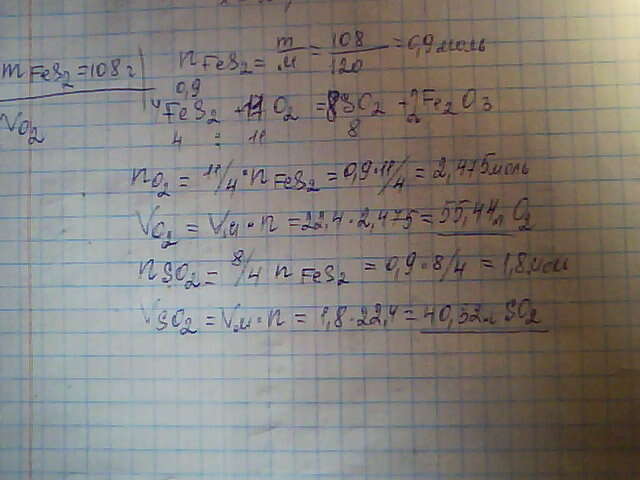 m FeS2 = 108 г
VO2
n FeS2 = m/M = 108/120 = 0,9 моль
0,9
4FeS2 + 11O2 = 8SO2 + 2Fe2O3
4 : 11 8
nO2 = 11/4 · n FeS2 = 0,9 · 11/4 = 2,475 моль
VO2 = Vм · n = 22,4 · 2,475 = 55,44 л O2
n SO2 = 8/4 n FeS2 = 0,9 · 8/4 = 1,8 моль
VSO2 = Vм · n = 1,8 · 22,4 = 40,32 л SO2